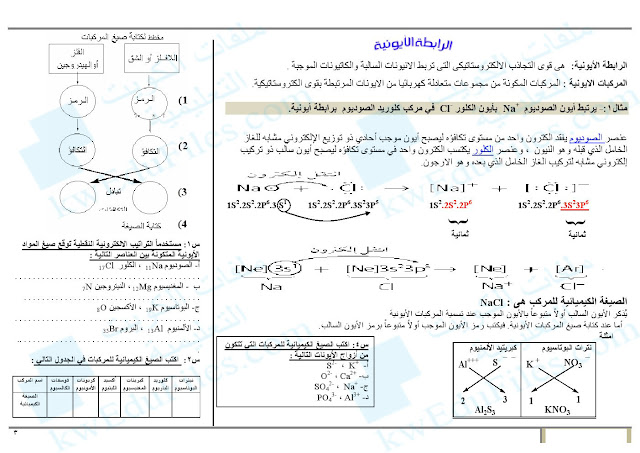 الرابطة الأيونية
الرابطة الأيونية : هى قوى التجاذب الالكتروستاتيكى التى تربط الانيونات السالبة والكاتيونات الموجبة .
المركبات الأيونية : المركبات المكونة من مجموعات متعادلة كهربائيا من الايونات المرتبطة بقوى الكتروستاتيكية.
مثال١:- يرتبط أيون الصوديوم Na⁺ بأيون الكلور Cl⁻ في مركب كلوريد الصوديوم برابطة أيونية.
عنصر الصوديوم يفقد الكترون واحد من مستوى تكافؤه ليصبح أيون موجب أحادي ذو توزيع الإلكتروني مشابه للغاز
الخامل الذي قبله و هو النيون ، وعنصر الكلور يكتسب الكترون واحد في مستوى تكافؤه ليصبح أيون سالب ذو تركيب
إلكتروني مشابه لتركيب الغاز الخامل الذي بعده و هو الارجون.
انتقال الكترون
Na + Cl → [Na]⁺ + [:Cl:]⁻
1S².2S².2P⁶.3S¹ 1S².2S².2P⁶.3S².3P⁵ 1S².2S².2P⁶ 1S².2S².2P⁶.3S².3P⁶
ثمانية ثمانية
انتقال الكترون
[Ne]3s¹ + [Ne]3s²3p⁵ → [Ne] + [Ar]
Na Cl Na⁺ Cl⁻
الصيغة الكيميائية للمركب هى : NaCl
يُذكر الأيون السالب أولاً متبوعاً بالأيون الموجب عند تسمية المركبات الأيونية
أما عند كتابة صيغ المركبات الأيونية. فيكتب رمز الأيون الموجب أولاً متبوعاً برمز الأيون السالب.
امثلة
نترات البوتاسيوم
K⁺ NO₃⁻
1 1
KNO₃
كبريتيد الالمنيوم
Al⁺⁺⁺ S⁻⁻
2 3
Al₂S₃
س٤: اكتب الصيغ الكيميائية للمركبات التى تتكون
من أزواج الأيونات التالية :
أ- K⁺ ، S²⁻
ب- Ca²⁺ ، O²⁻
ج- Na⁺ ، SO₄²⁻
د- Al³⁺ ، PO₄³⁻
مخطط لكتابة صيغ المركبات
اللافلز أو الشق
الفلز أو الهيدروجين
(1
الرمز
الرمز
(2
التكافؤ
التكافؤ
(3
تبادل
(4
كتابة الصيغة
س١: مستخدماً التراتيب الالكترونية النقطية توقع صيغ المواد
الأيونية المتكونة بين العناصر التالية :
أ- الصوديوم ₁₁Na ، الكلور ₁₇Cl
ب - المغنيسيوم ₁₂Mg ، النيتروجين ₇N
ج- البوتاسيوم ₁₉K ، الأكسجين ₈O
د- الألمنيوم ₁₃Al ، البروم ₃₅Br
س٢: اكتب الصيغ الكيميائية للمركبات في الجدول التالي :
اسم المركب
الصيغة الكيميائية
٣